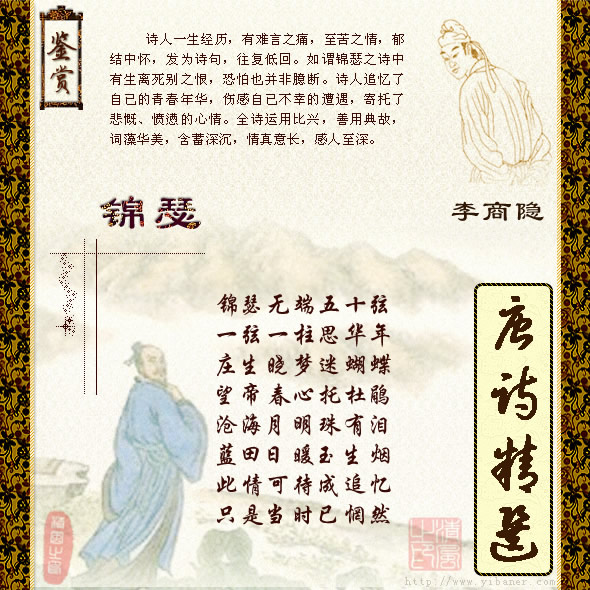 鉴赏
诗人一生经历，有难言之痛，至苦之情，郁
结中怀，发为诗句，往复低回。如谓锦瑟之诗中
有生离死别之恨，恐怕也并非臆断。诗人追忆了
自己的青春年华，伤感自己不幸的遭遇，寄托了
悲慨、愤懑的心情。全诗运用比兴，善用典故，
词藻华美，含蓄深沉，情真意长，感人至深。
锦瑟
李商隐
锦瑟无端五十弦
一弦一柱思华年
庄生晓梦迷蝴蝶
望帝春心托杜鹃
沧海月明珠有泪
蓝田日暖玉生烟
此情可待成追忆
只是当时已惘然
唐诗精选
http://www.yibaner.com